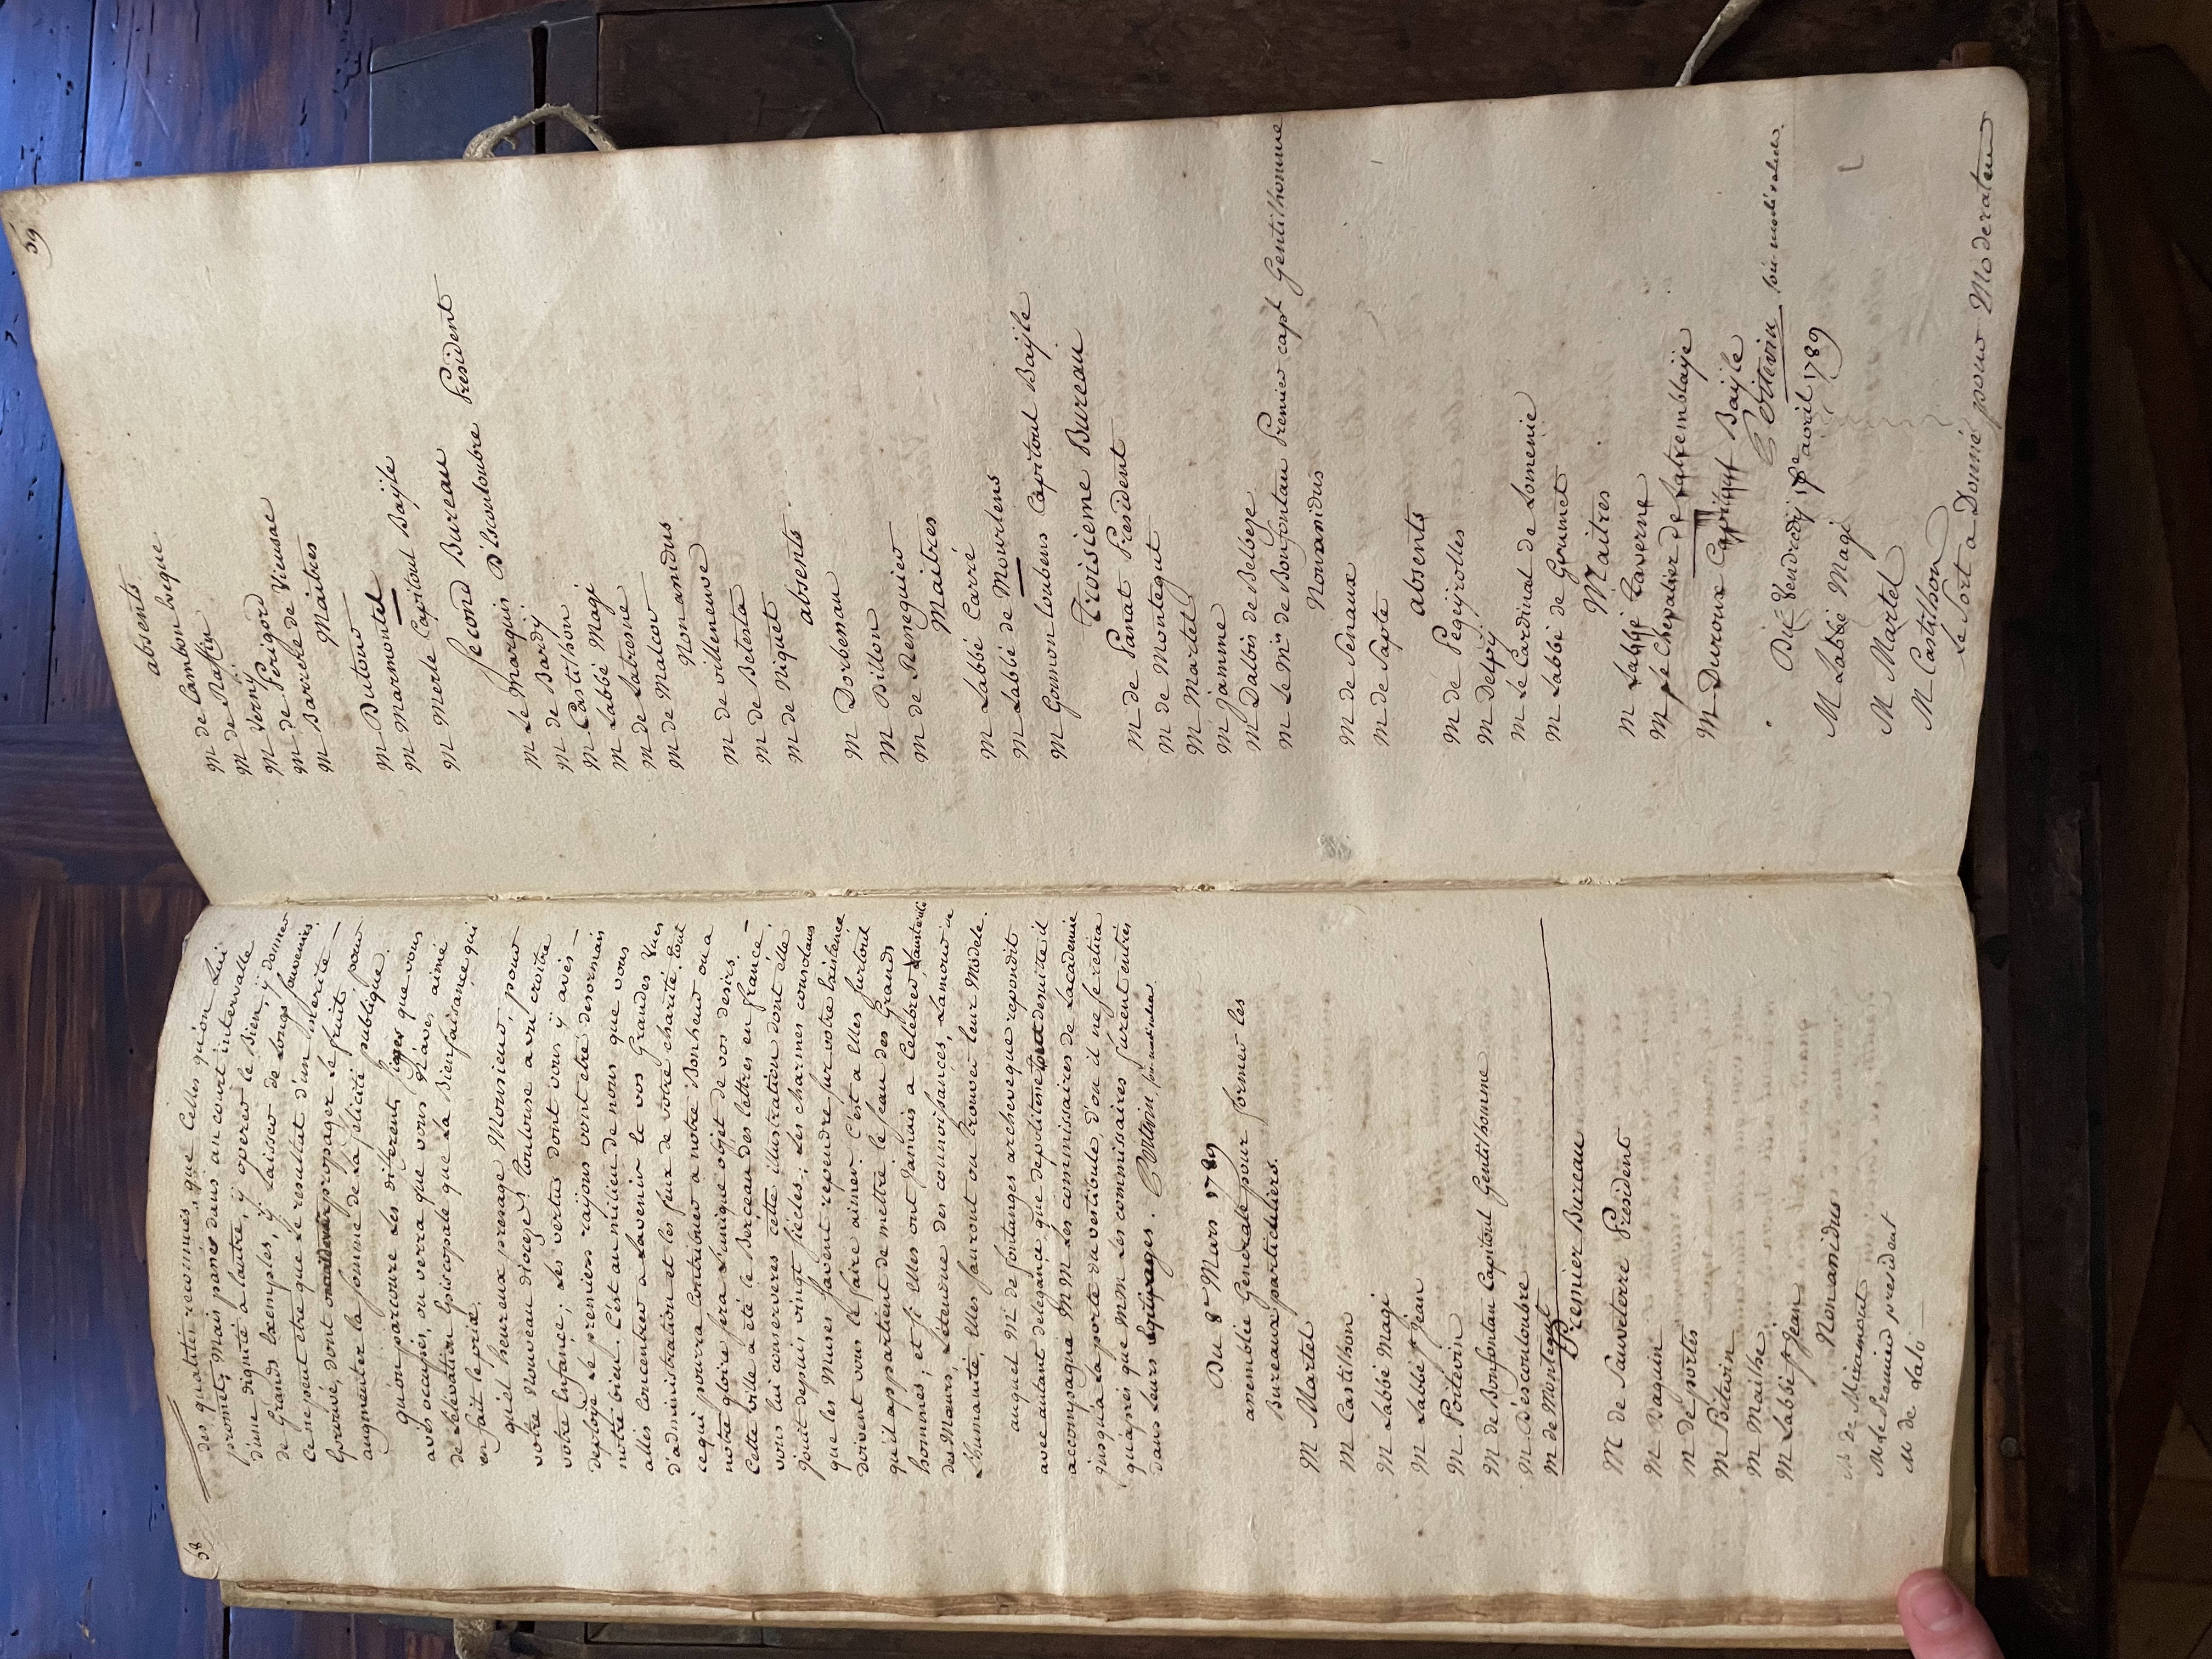 58
des qualités reconnües, que Celles qu'on lui
promet; Mais passés dans un court intervalle
d'une dignité a l'autre, y operer le Bien, y donner
de Grands Exemples, y Laisser de Longs souvenirs
Ce ne peut etre que le resultat d'un merite
Eprouvé, dont on doit propager le fruit
augmenter la somme de la felicité publique.
qu'on parcoure les differents sieges que vous
avés occupés, on verra que vous n'avés aimé
de l'elevation Episcopale que la Bienfaisance qui
en fait le prix.
quel heureux presage Monsieur, pour
votre Nouveau diocèze! Toulouse a vu croitre
votre Enfance; les vertus dont vous y avés
deployé les premiers rayons vont etre desormais
notre bien. C'est au milieu de nous que vous
allés Concentrer a l'avenir et vos Grandes Vues
d'administration et les feux de votre charité. tout
ce qui pourra Contribuer a notre Bonheur ou a
notre gloire sera l'unique objet de vos desirs.
Cette ville a été le Berceau des lettres en france
vous lui conserverés cette illustration dont elle
Jouit depuis vingt siecles; Les charmes consolans
que les Muses savent repandre sur notre Existence
doivent vous la faire aimer. C'est a Elles surtout
qu'il appartient de mettre le sceau des Grands
hommes; et si Elles ont Jamais a Celebrer l'austerité
des Mœurs, l'étendue des connoissances, l'amour de
l'humanité, Elles sauront ou trouver leur Modele.
auquel Mr. de fontanges archeveque repondit
avec autant d'elegance que de politesse ensuite il
accompagna MM les commissaires de Lacademie
jusqu'a la porte du vestibule, d'ou il ne se retira
qu'après que MM Les commissaires furent entrés
dans leurs Equipages. Poitevin, sec. perpetuel
Du 8e Mars 1789
assemblée Generale pour former les
Bureaux particuliers.
M Martel
M Castilhon
M Labbé Magi
M Labbé St Jean
M Poitevin
M de Bonfontan Capitoul Gentilhomme
M D'escouloubre
M de Montegut
Premier Bureau
M de Sauveterre President
M Daguin
M de portes
M Poitevin
M Mailhe
M Labbé St Jean
Nominandus
M de Miramont
M le Premier president
M de Lalo
59
absents
M de Cambon Eveque
M de Raffin
M Verny
M de Périgord
M de Barrere de Vieusac
Maitres
M Dutour
M Marmontel
M Merle Capitoul Baÿle
Second Bureau
M Le Marquis D'Escouloubre President
M de Bardy
M Castilhon
M Labbé Magi
M de Latresne
M de Malcor
Nominandus
M de villeneuve
M de Belesta
M de Niquet
absents
M Dorbessan
M Billon
M de Reneguier
Maitres
M Labbé Carré
M Labbé de Mourlens
M Gounon Loubens Capitoul Baÿle
Troisieme Bureau
M de Panat President
M de Montegut
M Martel
M Jamme
M Dalbis de Belbeze
M Le Mis de Bonfontan Premier capt Gentilhomme
Nominandus
M de Senaux
M de Sapte
absents
M de Pegeÿrolles
M Delpÿ
M Le Cardinal de Lomenie
M Labbé de Grumet
Maitres
M Labbé Taverne
M le Chevalier de Latremblaÿe
M Duroux Capitoul Baÿle
Poitevin
Du Vendredy avril 1789
M Labbé Magi
M Martel
M Castilhon
Le sort a Donné pour Moderateur